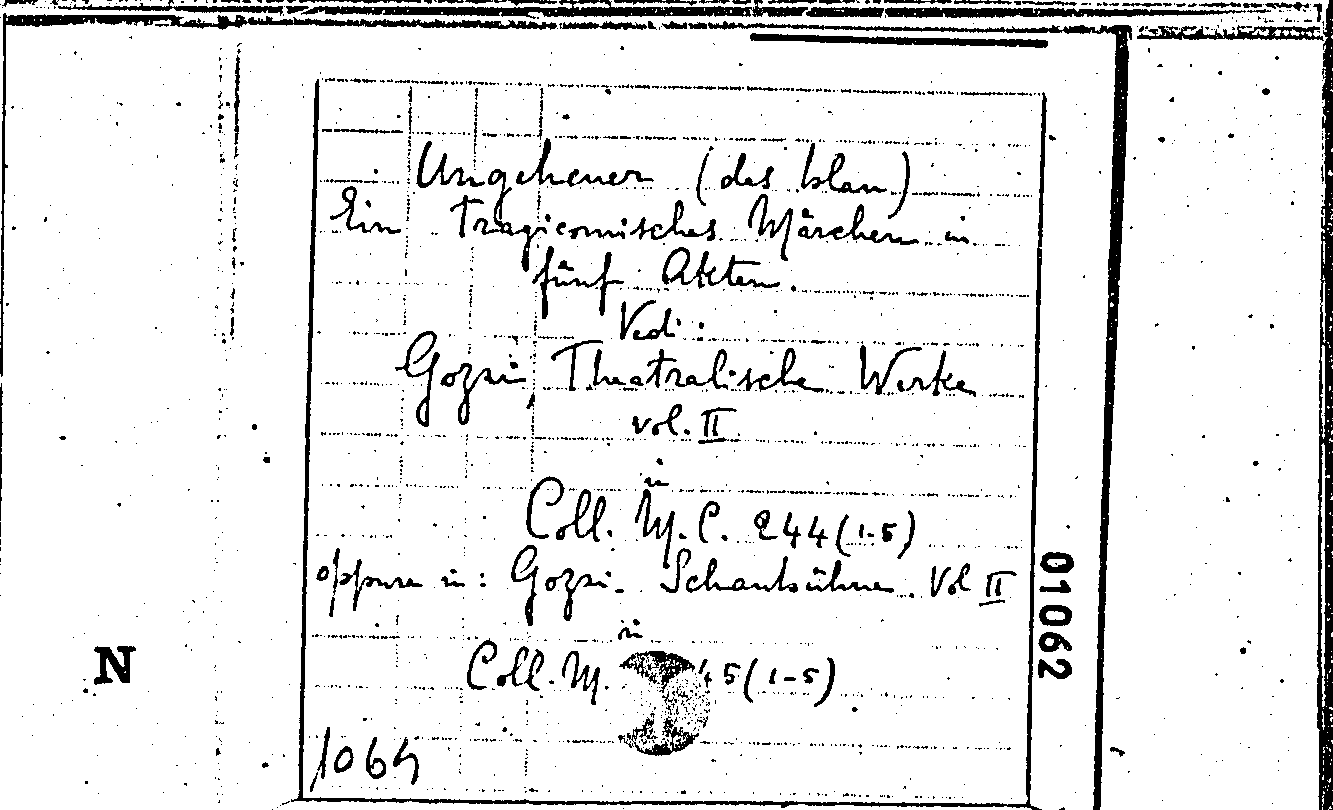 Ungeheuer (das blau)
Ein Tragicomisches Märchen in
fünf Akten.
Vedi:
Gozzi, Theatralische Werke
vol. II
in
Coll. M.C. 244(1-5)
oppure in: Gozzi. Schaubühne. Vol II
in
Coll. M. 45(1-5)
1064
01062
N